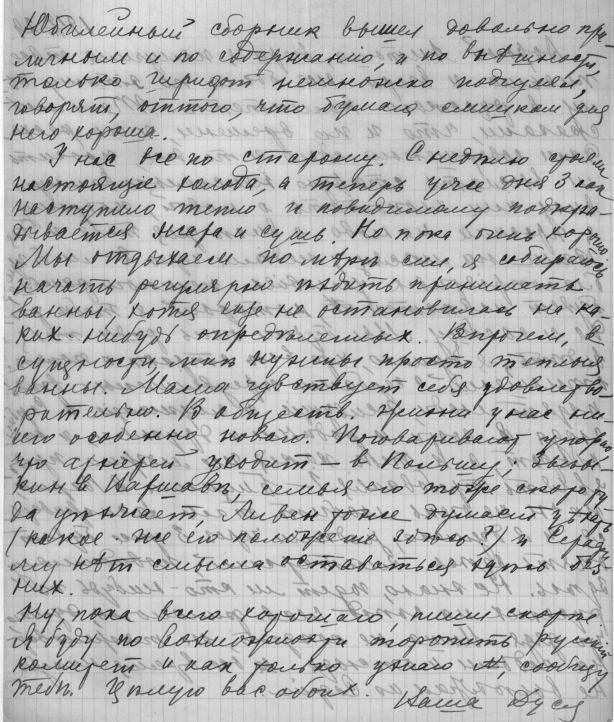 Юбилейный сборник вышел довольно при
личным и по содержанію и по внѣшности,
только шрифт немножко подгулял,
говорят, оттого, что бумага слишком для
него хороша.
У нас все по старому. С неделю стояли
настоящіе холода, а теперь уже дня 3 как
наступило тепло и повидимому подкра
дывается жара и сушь. Но пока очень хорошо.
Мы отдыхаем по мѣрѣ сил, я собираюсь
начать регулярно ѣздить принимать
ванны, хотя еще не остановилась на ка
ких-нибудь опредѣленных. Впрочем, в
сущности, мнѣ нужны просто теплыя
ванны. Мама чувствует себя удовлетво
рительно. В обществ. жизни у нас ни
чего особенно нового. Поговаривают упорно,
что архіерей уходит — в Польшу,
в Варшавѣ, семья его тоже скоро
да уѣзжает, тоже думает уѣхать
(какое же его положение здѣсь?) и
му нѣт смысла оставаться здѣсь без
них.
Ну, пока всего хорошаго, пиши скорѣе
Я буду по возможности торопить русскій
комитет и как только узнаю, сообщу
тебѣ. Цѣлую вас обоих. Ваша Дуся